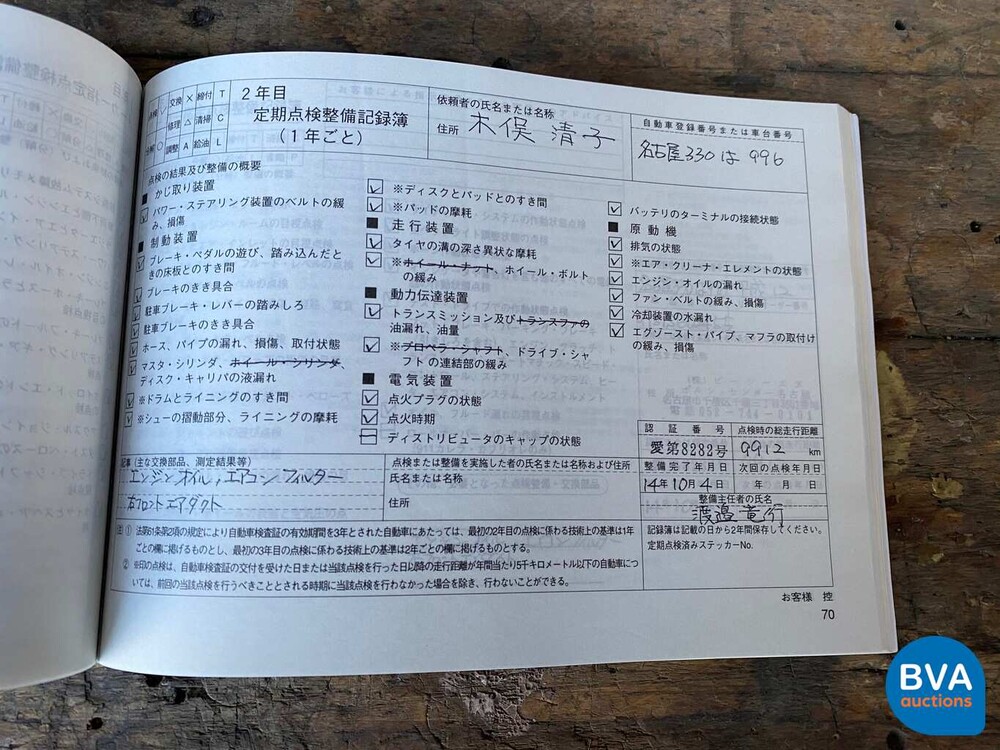 交換 × 締付 T
修理 △ 清掃 C
調整 A 給油 L
2年目
定期点検整備記録簿
(1年ごと)
依頼者の氏名または名称
住所 木俣 清子
自動車登録番号または車台番号
名古屋330は996
点検の結果及び整備の概要
■ かじ取り装置
パワー・ステアリング装置のベルトの緩
み、損傷
■ 制動装置
ブレーキ・ペダルの遊び、踏み込んだと
きの床板とのすき間
ブレーキのきき具合
駐車ブレーキ・レバーの踏みしろ
駐車ブレーキのきき具合
ホース、パイプの漏れ、損傷、取付状態
マスタ・シリンダ、ホイール・シリンダ、
ディスク・キャリパの液漏れ
※ドラムとライニングのすき間
※シューの摺動部分、ライニングの摩耗
※ディスクとパッドとのすき間
※パッドの摩耗
■ 走行装置
タイヤの溝の深さ異状な摩耗
※ホイール・ナット、ホイール・ボルト
の緩み
■ 動力伝達装置
トランスミッション及びトランスファの
油漏れ、油量
※プロペラ・シャフト、ドライブ・シャ
フトの連結部の緩み
■ 電気装置
点火プラグの状態
点火時期
ディストリビュータのキャップの状態
バッテリのターミナルの接続状態
■ 原動機
排気の状態
※エア・クリーナ・エレメントの状態
エンジン・オイルの漏れ
ファン・ベルトの緩み、損傷
冷却装置の水漏れ
エグゾースト・パイプ、マフラの取付け
の緩み、損傷
認証番号 点検時の総走行距離
愛第8282号 9912 km
整備完了年月日 次回の点検年月日
14年10月4日 年 月 日
整備主任者の氏名
渡邉竜行
記録簿は記載の日から2年間保存してください。
定期点検済みステッカーNo.
記事 (主な交換部品、測定結果等)
エンジンオイル,エアコンフィルター
右フロントエアダクト
点検または整備を実施した者の氏名または名称および住所
氏名または名称
住所
(注) ① 法第61条第2項の規定により自動車検査証の有効期間を3年とされた自動車にあたっては、最初の2年目の点検に係わる技術上の基準は1年
ごとの欄に掲げるものとし、最初の3年目の点検に係わる技術上の基準は2年ごとの欄に掲げるものとする。
② ※印の点検は、自動車検査証の交付を受けた日または当該点検を行った日以降の走行距離が年間当たり5千キロメートル以下の自動車につ
いては、前回の当該点検を行うべきこととされる時期に当該点検を行わなかった場合を除き、行わないことができる。
お客様 控
70
BVA
auctions